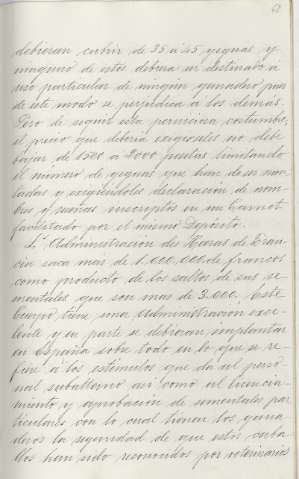 debieran cubrir de 35 a 45 yeguas, y
ninguno de estos debiera ser destinado a
uso particular de ningun ganadero pues
de este modo se perjudica a los demas.
Pero de seguir esta perniciosa costumbre,
el precio que deberia exigirseles no debe
bajar de 1500 a 2000 pesetas limitando
el numero de yeguas que han de ser mon-
tadas y exigiendole declaracion de nom-
bres y reseñas inscriptos en un Carnet
facilitado por el mismo Depósito.
La Administracion des Haras de Fran-
cia saca mas de 1.000.000 de francos
como producto de los saltos de sus se-
mentales que son mas de 3.000. Este
Cuerpo tiene una Administracion exce-
lente y en parte se debieran implantar
en España sobre todo en lo que se re-
fiere a los estimulos que da al perso-
nal subalterno asi como al licencia-
miento y aprobacion de sementales par
ticulares con lo cual tienen los gana
deros la seguridad de que estos caba
llos han sido reconocidos por veterinarios